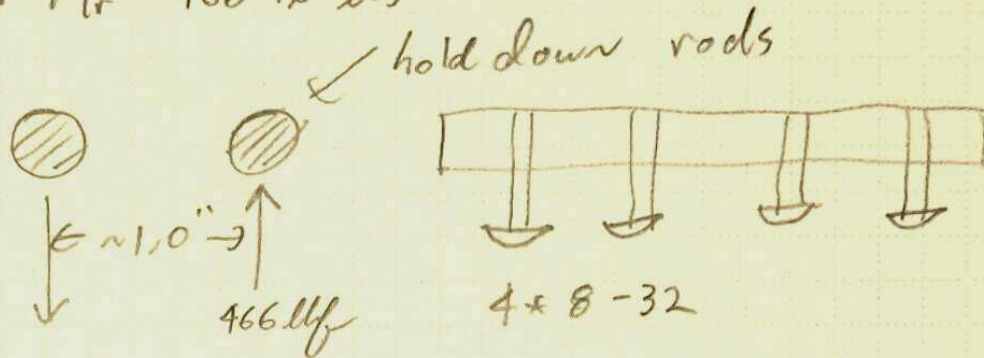 hold down rods
~1,0"
466 lbf
4 * 8-32